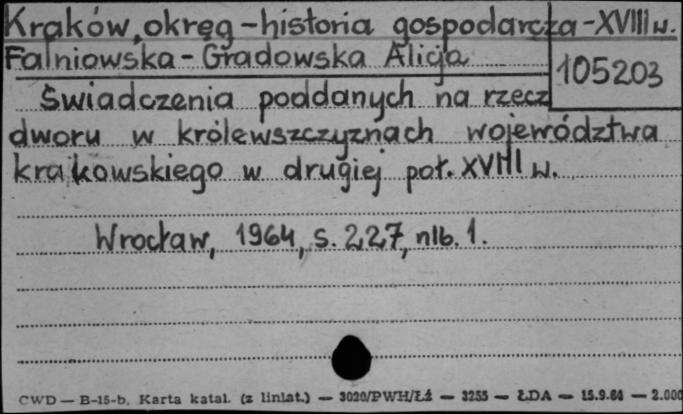 Kraków, okręg - historia gospodarcza - XVIII w.
Falniowska - Gradowska Alicja
105203
Świadczenia poddanych na rzecz
dworu w królewszczyznach województwa
krakowskiego w drugiej poł. XVIII w.
Wrocław, 1964, s. 227, nlb. 1.
CWD — B-15-b. Karta katal. (z liniat.) — 3020/PWH/Łź — 3255 — ŁDA — 15.9.66 — 2.000